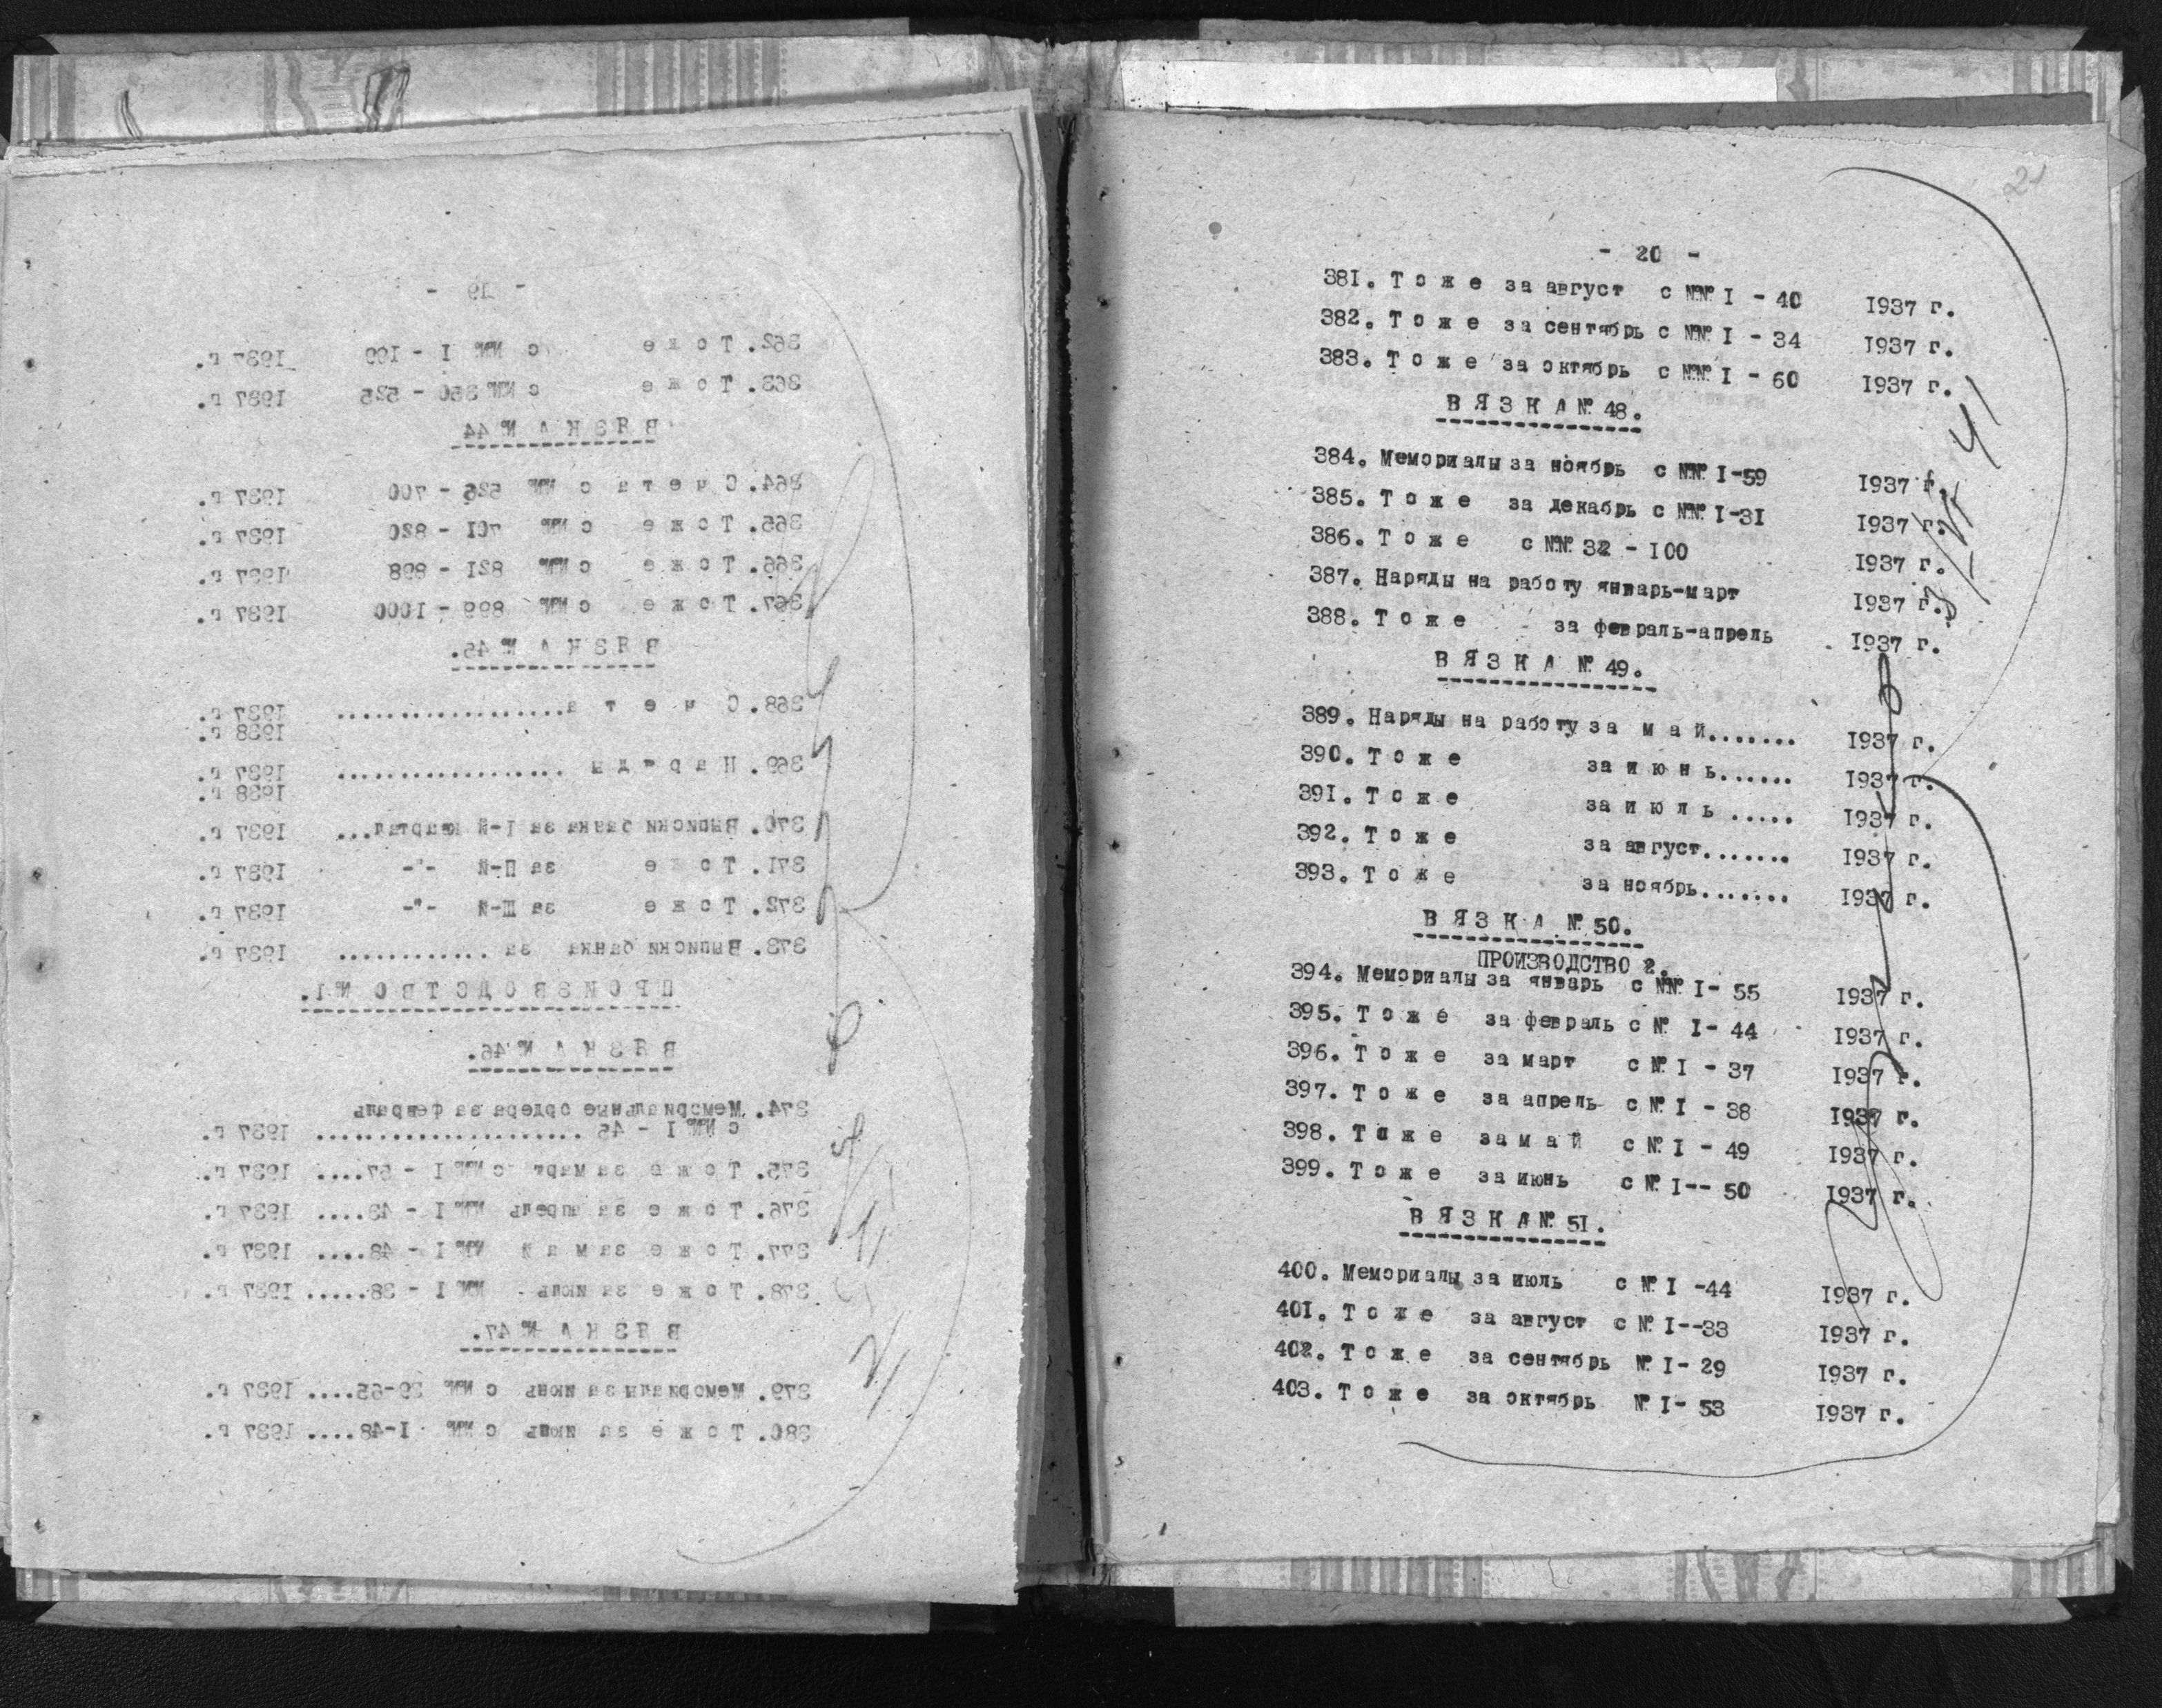 - 19 -
362. Т о ж е с №№ I - 199 1937 г.
363. Т о ж е с №№ 350 - 525 1937 г.
В Я З К А № 44
364. С ч е т а с №№ 526 - 700 1937 г.
365. Т о ж е с №№ 701 - 820 1937 г.
366. Т о ж е с №№ 821 - 898 1937 г.
367. Т о ж е с №№ 899 - 1000 1937 г.
В Я З К А № 45.
368. С ч е т а.................. 1937 г.
1938 г.
369. Н а р я д ы .................. 1937 г.
1938 г.
370. Выписки банка за I-й квартал... 1937 г.
371. Т о ж е за П-й -"- 1937 г.
372. Т о ж е за Ш-й -"- 1937 г.
373. Выписки банка за ............ 1937 г.
П Р О И З В О Д С Т В О №1.
В Я З К А № 46.
374. Мемориальные ордера за февраль
с №№ I - 45 ..................... 1937 г.
375. Т о ж е за март с №№ I - 57.... 1937 г.
376. Т о ж е за апрель №№ I - 43.... 1937 г.
377. Т о ж е за м а й №№ I - 48.... 1937 г.
378. Т о ж е за июль №№ I - 38..... 1937 г.
В Я З К А № 47.
379. Мемориалы за июнь с №№ 39-65.... 1937 г.
380. Т о ж е за июль с №№ I-48.... 1937 г.
2
- 20 -
381. Т о ж е за август с №№ I - 40 1937 г.
382. Т о ж е за сентябрь с №№ I - 34 1937 г.
383. Т о ж е за октябрь с №№ I - 60 1937 г.
В Я З К А № 48.
384. Мемориалы за ноябрь с №№ I-59 1937 г.
385. Т о ж е за декабрь с №№ I-31 1937 г.
386. Т о ж е с №№ 32 - 100 1937 г.
387. Наряды на работу январь-март 1937 г.
388. Т о ж е за февраль-апрель 1937 г.
В Я З К А № 49.
389. Наряды на работу за м а й....... 1937 г.
390. Т о ж е за и ю н ь...... 1937 г.
391. Т о ж е за и ю л ь ..... 1937 г.
392. Т о ж е за август....... 1937 г.
393. Т о ж е за ноябрь....... 1937 г.
В Я З К А № 50.
ПРОИЗВОДСТВО 2.
394. Мемориалы за январь с №№ I- 55 1937 г.
395. Т о ж е за февраль с № I- 44 1937 г.
396. Т о ж е за март с № I - 37 1937 г.
397. Т о ж е за апрель с № I - 38 1937 г.
398. Т о ж е за м а й с № I - 49 1937 г.
399. Т о ж е за июнь с № I-- 50 1937 г.
В Я З К А № 51.
400. Мемориалы за июль с № I -44 1937 г.
401. Т о ж е за август с № I--33 1937 г.
402. Т о ж е за сентябрь № I- 29 1937 г.
403. Т о ж е за октябрь № I- 53 1937 г.